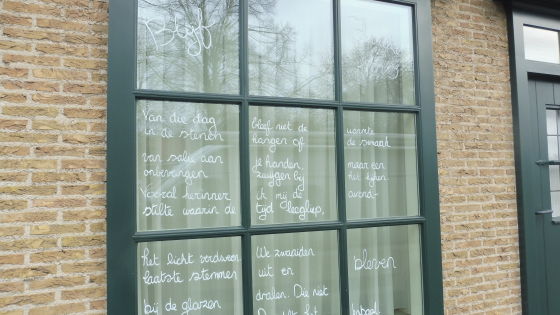 Blijf
Van die dag
in de stenen
van salie aan
ontvangen
Vooral
stilte waarin de
bleef niet de
hangen of
je handen,
zwijgen bij
ik mij de
tijd leegliep.
warmte
de smaak
maar een
het
avond
het licht verdween
laatste stemmen
bij de glazen
We zwaaiden
uit en
Die niet
bleven